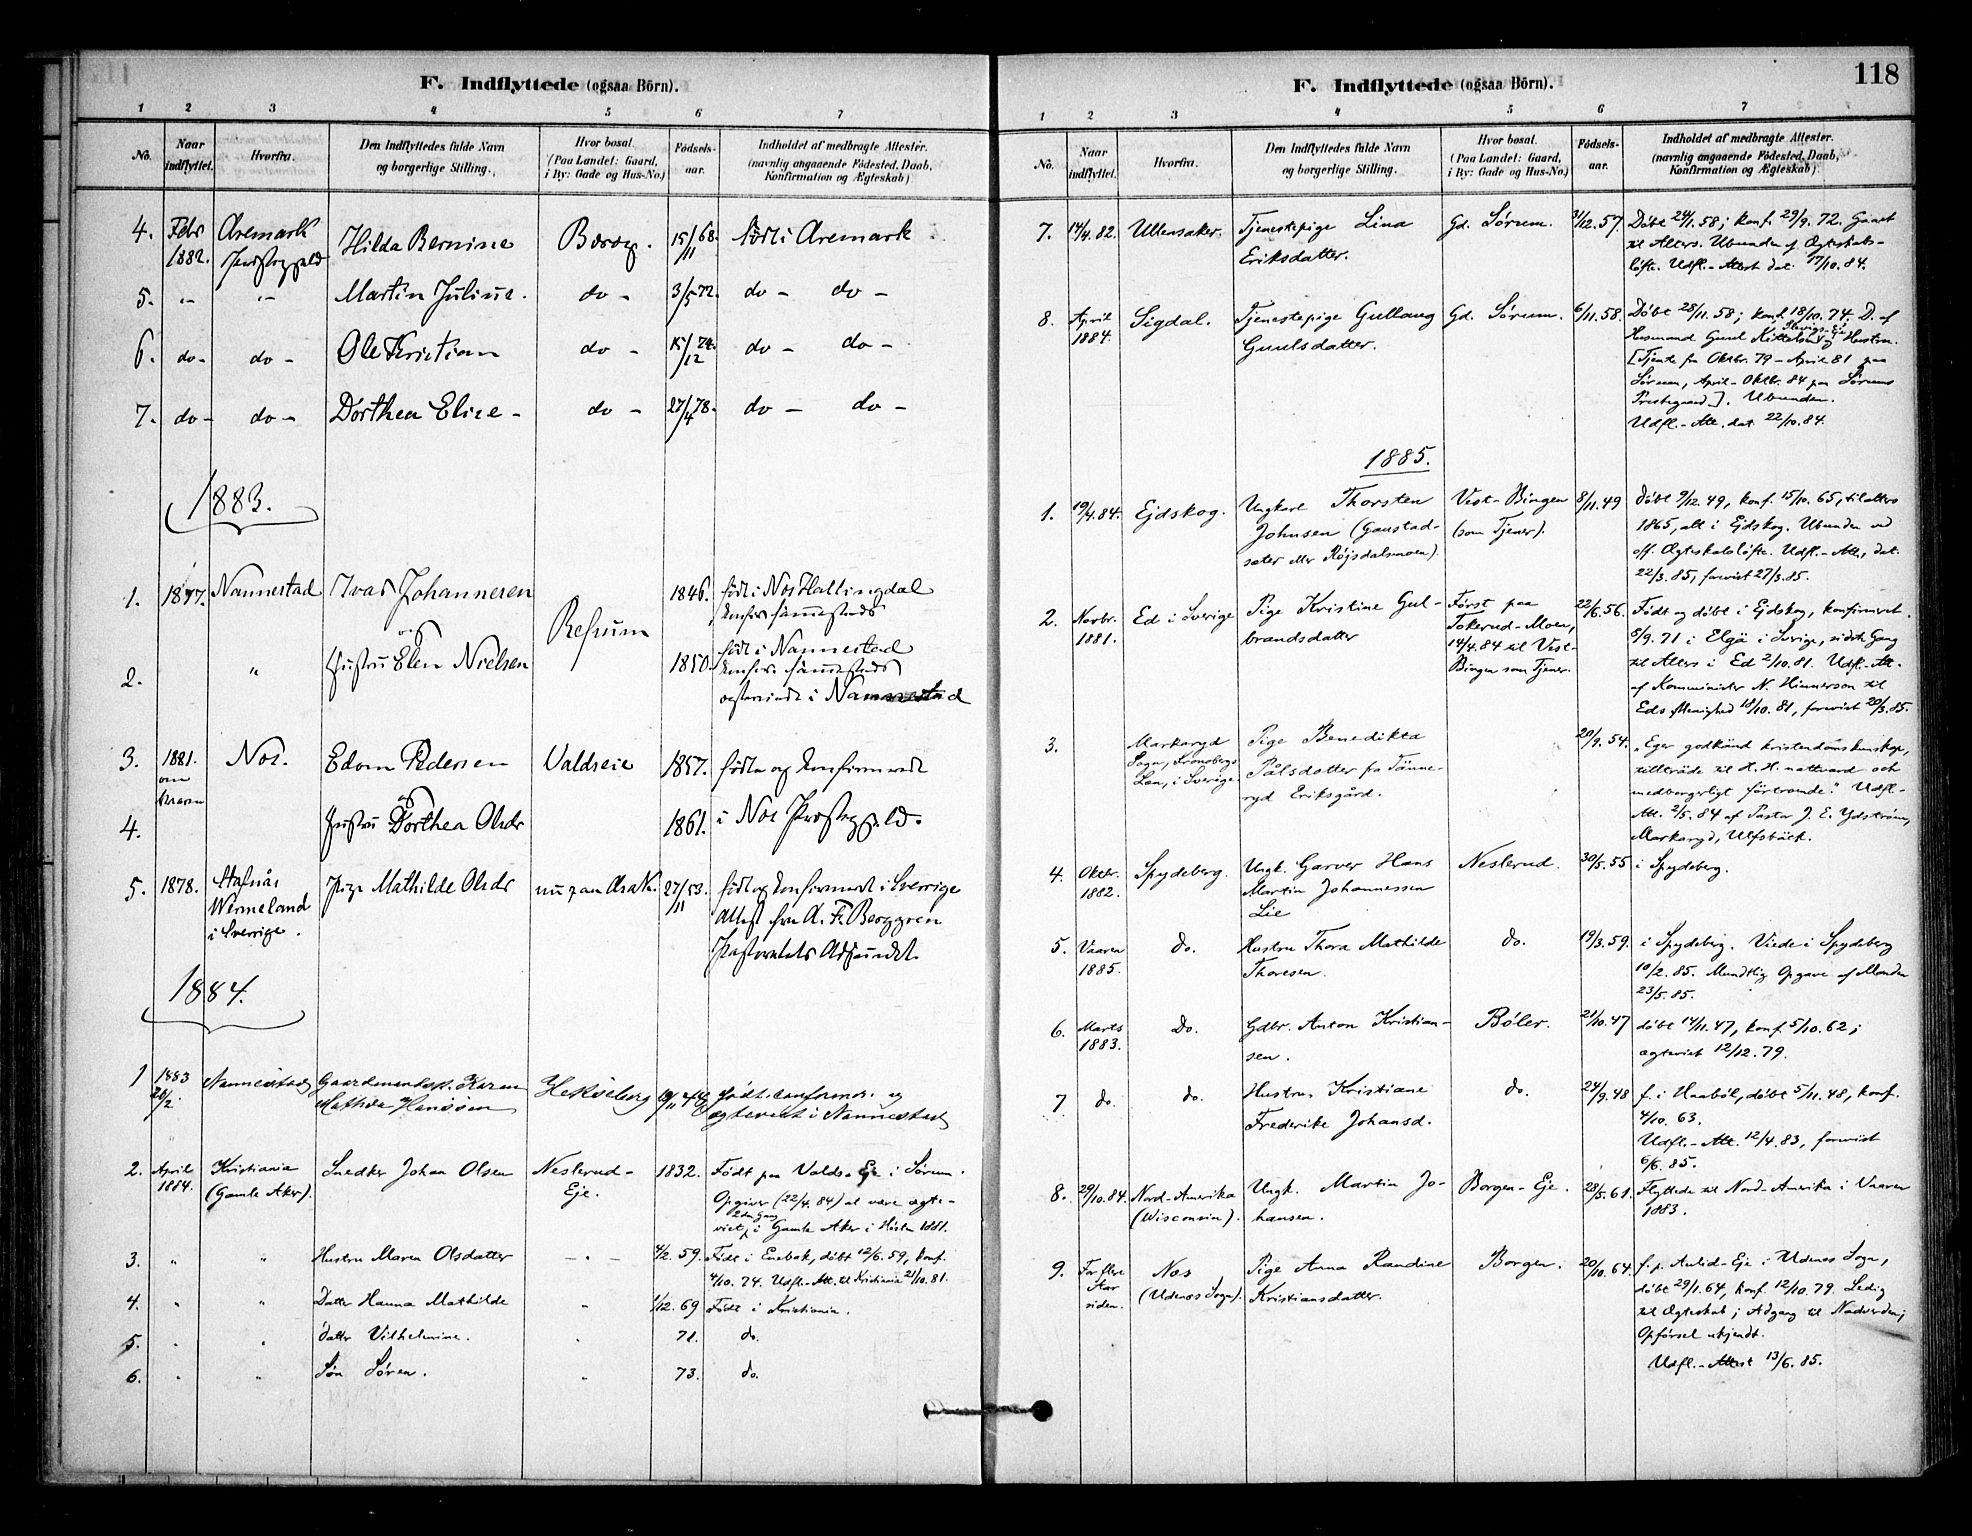 F. Indflyttede (ogsaa Börn).
1 2 3 4 5 6 7
No. Naar indflyttet. Hvorfra. Den Indflyttedes fulde Navn og borgerlige Stilling. Hvor bosat. (Paa Landet: Gaard, i By: Gade og Hus-No.) Födsels-aar. Indholdet af medbragte Attester. (navnlig angaaende Födested, Daab, Konfirmation og Ægteskab)
4. Febr 1882. Aremark Hilda Bernine 15/11 68. født i Aremark
5. " " Martin Julius. do - 3/5 72. do - do -
6. do - do - Ole Kristian do - 15/12 do - do -
7. do - do - Dorthea Elise - do - 27/4 78. do - do -
1883.
1. 1877. Nannestad Ivar Johannesen 1846. født i Nes Hallingdal
og Refsum
2. " Hustru Elen Nielsen 1850. født i Nannestad
i Nannestad
3. 1881. Nes. Edom Pedersen Valdseie 1857. fødte og konfirmerede
og
4. Hustru Dorthea Olsdr 1861. i Nes
5. 1878. Wermeland i Sverrige. Pige Mathilde Olsdr 27/11 53. født og konfirmeret i Sverrige
Attest fra A. F. Berggren
1884.
1 1883 Nannestad Gaardmandsk. Karen Mathea Hanssen Hekseberg født, confirmer. og
ægteviet i Nannestad
2. April 1884. Kristiania (Gamle Aker). Snedker Johan Olsen Neslerud-Eje. 1832. Født paa Valds-Eje i Sørum.
Opgiver (22/4. 84) at være ægte-
2den Gang
viet i Gamle Aker i Høsten 1881.
3. " " Hustru Maren Olsdatter - " - 4/2. 59. Født i Enebak, døbt 12/6. 59, konf.
4/10. 74. Udfl.-Att. til Kristiania 21/10. 81.
4. " " Datter Hanna Mathilde " 1/12. 69 Født i Kristiania.
5. " " Datter Vilhelmine. " 71. do.
6. " " Søn Søren. " 73. do.
118
F. Indflyttede (ogsaa Börn).
1 2 3 4 5 6 7
No. Naar indflyttet. Hvorfra. Den Indflyttedes fulde Navn og borgerlige Stilling. Hvor bosat. (Paa Landet: Gaard, i By: Gade og Hus-No.) Födsels-aar. Indholdet af medbragte Attester. (navnlig angaaende Födested, Daab, Konfirmation og Ægteskab)
7. 14/4. 82. Ullensaker. Tjenestepige Lina Eriksdatter. Gd. Sørum. 31/12. 57. Døbt 24/1. 58; konf. 29/9. 72. Gaaet
til Alters. Ubunden af Ægteskabs-
løfte. Udfl.-Attest dat. 17/10. 84.
8. April 1884. Sigdal. Tjenestepige Gullaug Guulsdatter. Gd. Sørum. 6/11. 58. Døbt 28/11. 58; konf. 18/10. 74. D. af
Husmand Guul Kittelsen og Hustru.
[Tjente fra Oktbr. 79 - April 81 paa
Sørum, April - Oktbr. 84 paa Sørums
Prestegaard]. Ubunden.
Udfl.-Att. dat. 22/10. 84.
1885.
1. 19/4. 84. Ejdskog. Ungkarl Thorsten Johnsen (Gaustad-sæter eller Røjsdalsmoen). Vest-Bingen (som Tjener). 8/11. 49 Døbt 9/12. 49, konf. 15/10. 65, tilalters
1865, alt i Ejdskog. Ubunden ved
off. Ægteskabsløfte. Udfl.-Att. dat.
22/3. 85, forevist 27/3. 85.
2. Novbr. 1881. Ed i Sverige Pige Kristine Gulbrandsdatter Først paa Tokerud-Moen, 14/4. 84 til Vest-Bingen som Tjener. 22/6. 56. Født og døbt i Ejdskog, konfirmeret
8/9. 71 i Elgå i Sverige, sidste Gang
til Alters i Ed 2/10. 81. Udfl.-Att.
af Komminister N. Hinnerson til
Eds Menighed 18/10. 81, forevist 20/3. 85.
3. Markaryd Sogn, Kronobergs Len, i Sverige Pige Benedikta Pålsdatter fra Tänneryd Eriksgård. 20/9. 54. "Eger godkänd kristendomskunskap,
tillträde til H. H. nattvard och
medborgerligt förtroende." Udfl.-
Att. 2/5. 84 af Pastor J. E. Ydström,
Markaryd, Ulfsbäck.
4. Oktbr. 1882. Spydeberg. Ungk. Garver Hans Martin Johannessen Lie Neslerud. 30/5. 55 i Spydeberg.
5. Vaaren 1885. do. Hustru Thora Mathilde Thoresen. do. 19/3. 59. i Spydeberg. Viede i Spydeberg
10/2. 85. Mundtlig Opgave af Manden
23/5. 85.
6. Marts 1883. Do. Gdbr. Anton Kristiansen. Bøler. 21/10. 47 døbt 14/11. 47, konf. 5/10. 62;
ægteviet 12/12. 79.
7 do. do. Hustru Kristiane Frederike Johansd. do. 24/9. 48 f. i Haabøl, døbt 5/11. 48, konf.
4/10. 63.
Udfl.-Att. 12/4. 83, forevist
6/6. 85.
8. 29/10. 84. Nord-Amerika (Wisconsin). Ungk. Martin Johansen. Borgen-Eje. 28/5. 61. Flyttede til Nord-Amerika i Vaaren
1883.
9. For flere Aar siden. Nes (Udenes Sogn). Pige Anna Randine Kristiansdatter. Borgen. 20/10. 64. f. p. Aulid-Eje i Udenes Sogn,
døbt 29/1. 64, konf. 12/10. 79. Ledig
til Ægteskab; Adgang til Nadverden;
Opførsel ukjendt.
Udfl.-Attest 13/6. 85.